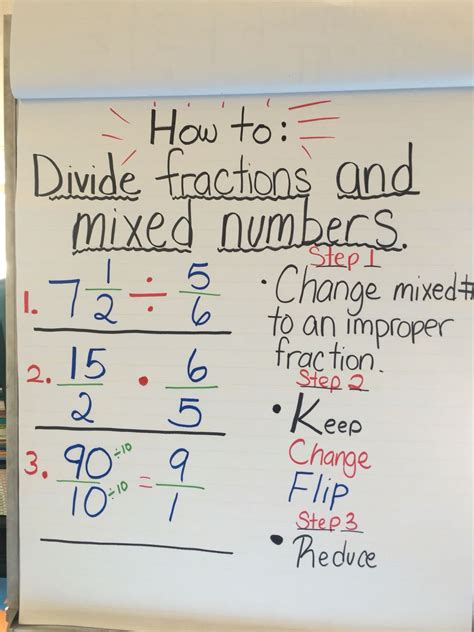 How to:
Divide fractions and
mixed numbers.
1. 7 1/2 ÷ 5/6
2. 15/2 · 6/5
3. 90/10 ÷10/÷10 = 9/1
Step 1
• Change mixed #
to an improper
fraction.
Step 2
• Keep
Change
Flip
Step 3
• Reduce